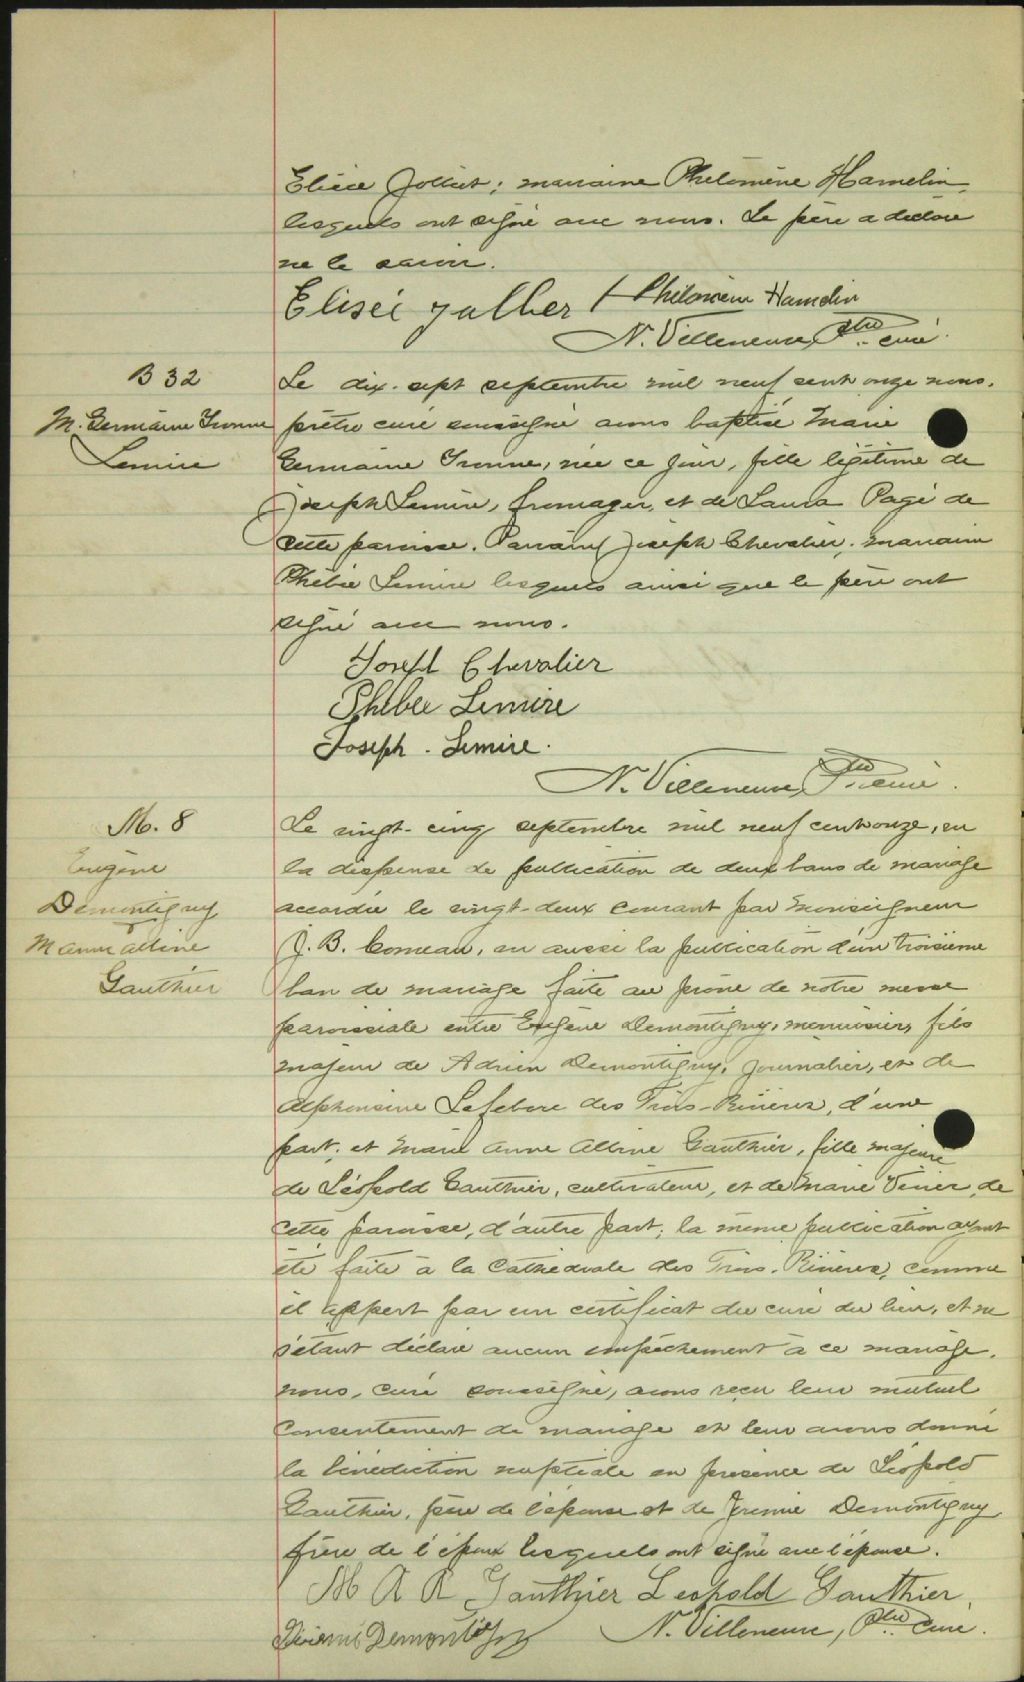 Elisée Jolliet; marraine Philomène Hamelin,
lesquels ont signé avec nous. Le père a déclaré
ne le savoir.
Elisée Jolliet Philomène Hamelin
N. Villeneuve, Ptre curé.
B 32
M. Germaine Yvonne
Lemire
Le dix-sept septembre mil neuf cent onze nous,
prêtre curé soussigné avons baptisé Marie
Germaine Yvonne, née ce jour, fille légitime de
Joseph Lemire, fromager, et de Laura Pagé de
cette paroisse. Parrain Joseph Chevalier; marraine
Phébée Lemire lesquels ainsi que le père ont
signé avec nous.
Joseph Chevalier
Phebée Lemire
Joseph Lemire.
N. Villeneuve, Ptre curé.
M. 8
Eugène
Demontigny
M Anne Albine
Gauthier
Le vingt-cinq septembre mil neuf cent onze, vu
la dispense de publication de deux bans de mariage
accordée le vingt-deux courant par Monseigneur
J. B. Comeau, vu aussi la publication d'un troisième
ban de mariage faite au prône de notre messe
paroissiale entre Eugène Demontigny, menuisier, fils
majeur de Adrien Demontigny, journalier, et de
Alphonsine Lefebvre des Trois-Rivières, d'une
part; et Marie Anne Albine Gauthier, fille majeure
de Léopold Gauthier, cultivateur, et de Marie de
cette paroisse, d'autre part; la même publication ayant
été faite à la Cathédrale des Trois-Rivières, comme
il appert par un certificat du curé du lieu, et ne
s'étant déclaré aucun empêchement à ce mariage,
nous, curé soussigné, avons reçu leur mutuel
consentement de mariage et leur avons donné
la bénédiction nuptiale en présence de Léopold
Gauthier, père de l'épouse et de Jérémie Demontigny
frère de l'époux lesquels ont signé avec l'épouse.
M A A Gauthier Leopold Gauthier
Jérémie Demontigny N. Villeneuve, Ptre curé.